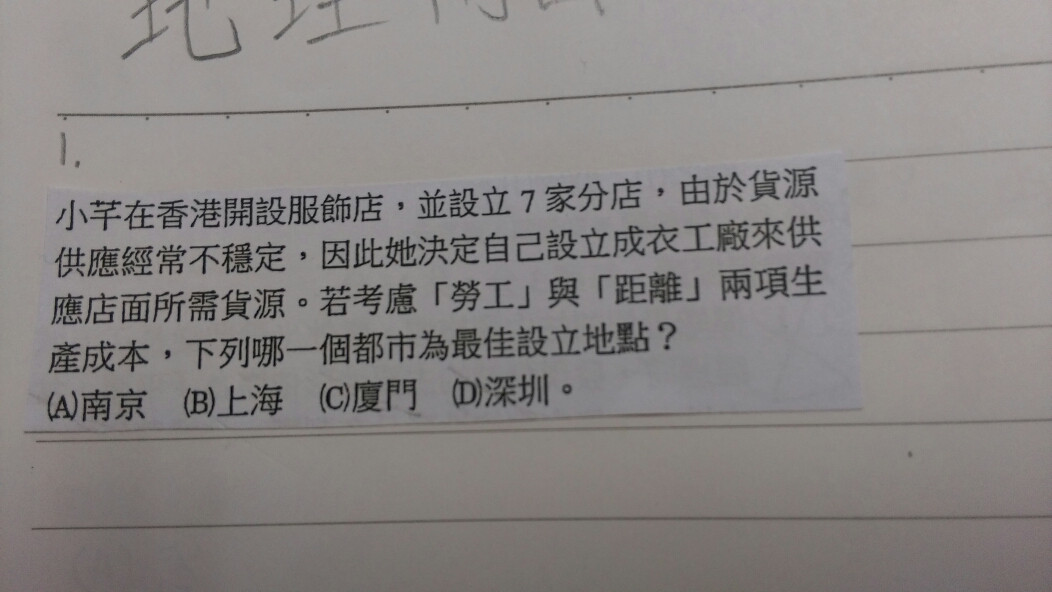 地理
1.
小芊在香港開設服飾店，並設立 7 家分店，由於貨源
供應經常不穩定，因此她決定自己設立成衣工廠來供
應店面所需貨源。若考慮「勞工」與「距離」兩項生
產成本，下列哪一個都市為最佳設立地點？
(A)南京 (B)上海 (C)廈門 (D)深圳。